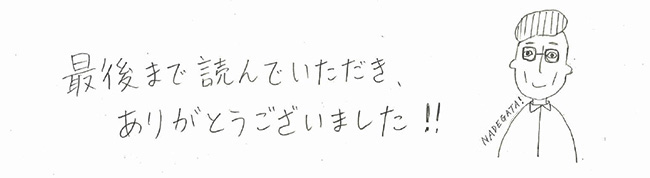 最後まで読んでいただき、
ありがとうございました!!
NADEGATA!